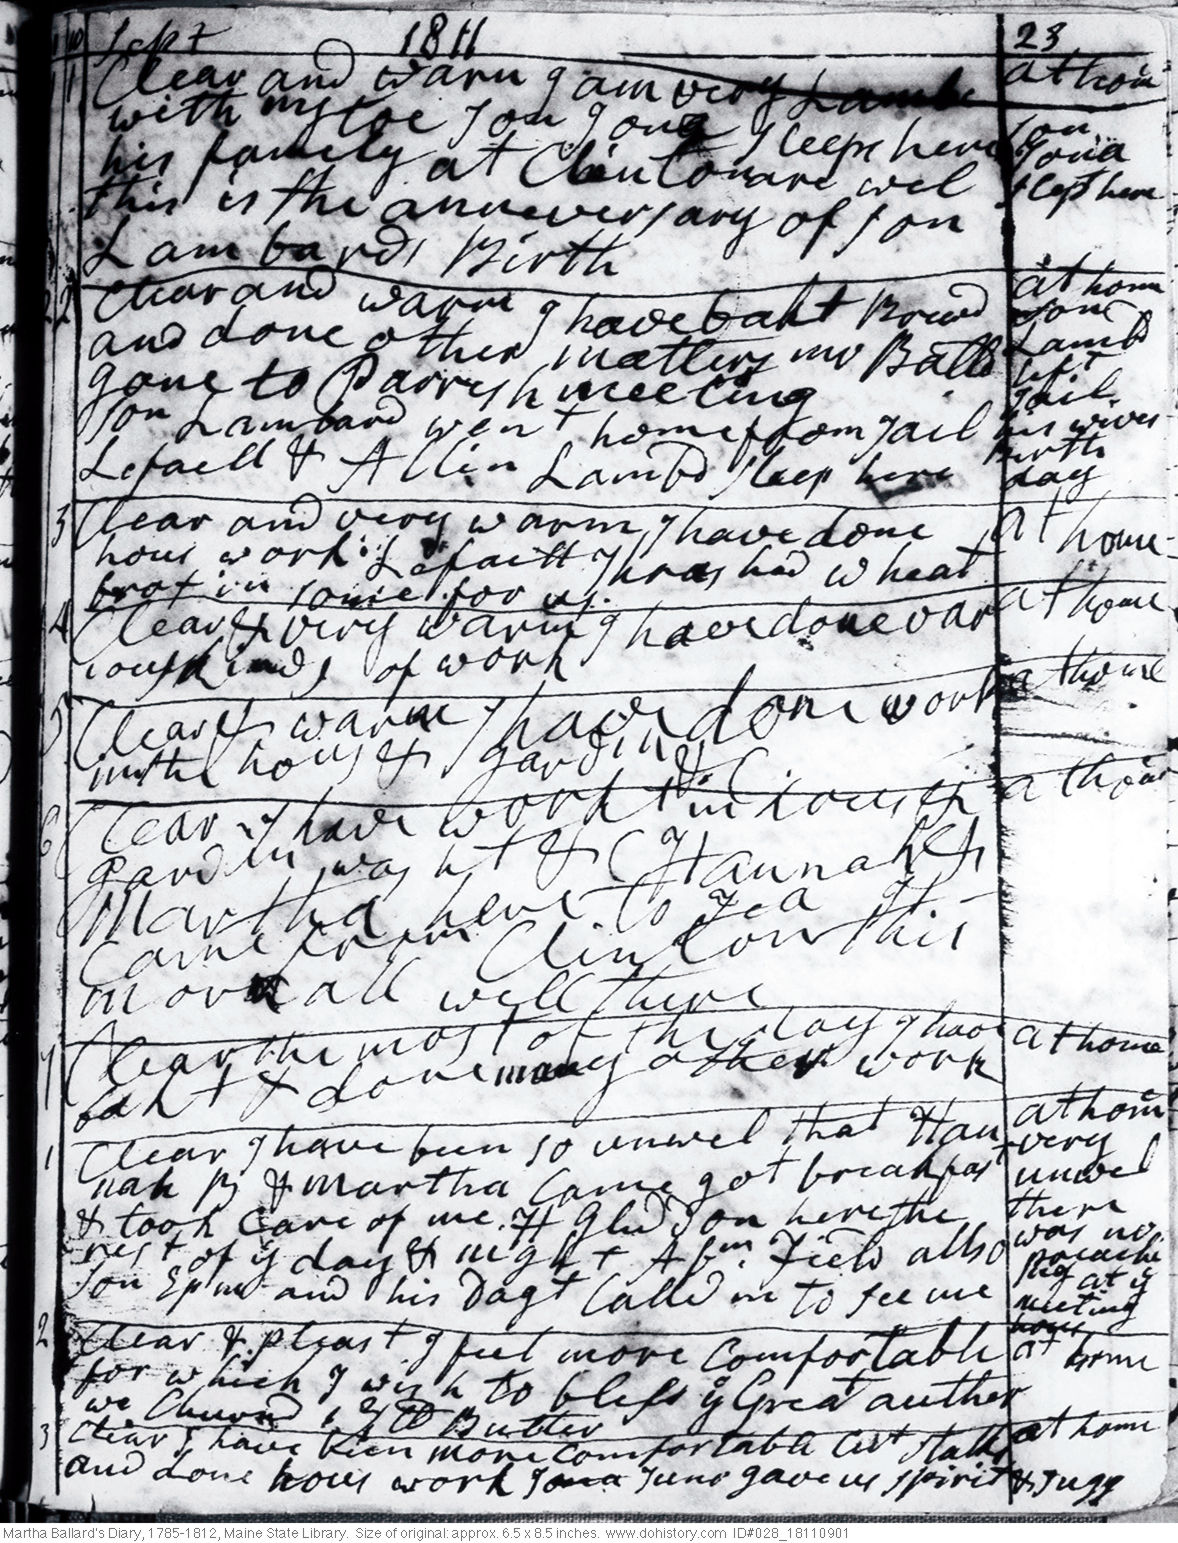 Sept 1811 23
1 1 Clear and warm I am very Lambe at hom
with my toe son Jona sleeps here son
his family at Clinton are wel Jona
this is the anneversary of son slept here
Lambards Birth
2 2 Clear and warm I have bakt Bread at home
and done other matters mr Balld sone
gone to Parrish meeting Lambd
son Lambard went home from jail left jail
Lefaell & Allin Lambd sleep here his wives birth day
3 Clear and very warm I have done at home
hous work Lefaell thrashed wheat
brot in some for us.
4 Clear & very warm I have done var at home
ious kinds of work
5 Clear & warm I have done work at home
in the hous & gardin
6 Clear I have workt in hous & at home
gardin washt & C Hannah &
Martha here to Tea
Came from Clinton this
morn all well there
7 Clear the most of the day I have at home
bakt & done many other work
1 Clear I have been so unwel that Han at hom
nah B & Martha Came got breakfast very unwel
& took Care of me. H Glud Son here the there
rest of ys day & night Abm. Field allso was no
son Epm and his Dagt Calld in to see me preaching at ys meeting hous
2 Clear & pleast I feel more Comfortable at home
for which I wish to bless ys Great auther
we Churnd Butter
3 Clear I have been more Comfortable Cut stalks at home
and done hous work Jona Junr gave us spirit & sugg
Martha Ballard's Diary, 1785-1812, Maine State Library. Size of original: approx. 6.5 x 8.5 inches. www.dohistory.com ID#028_18110901